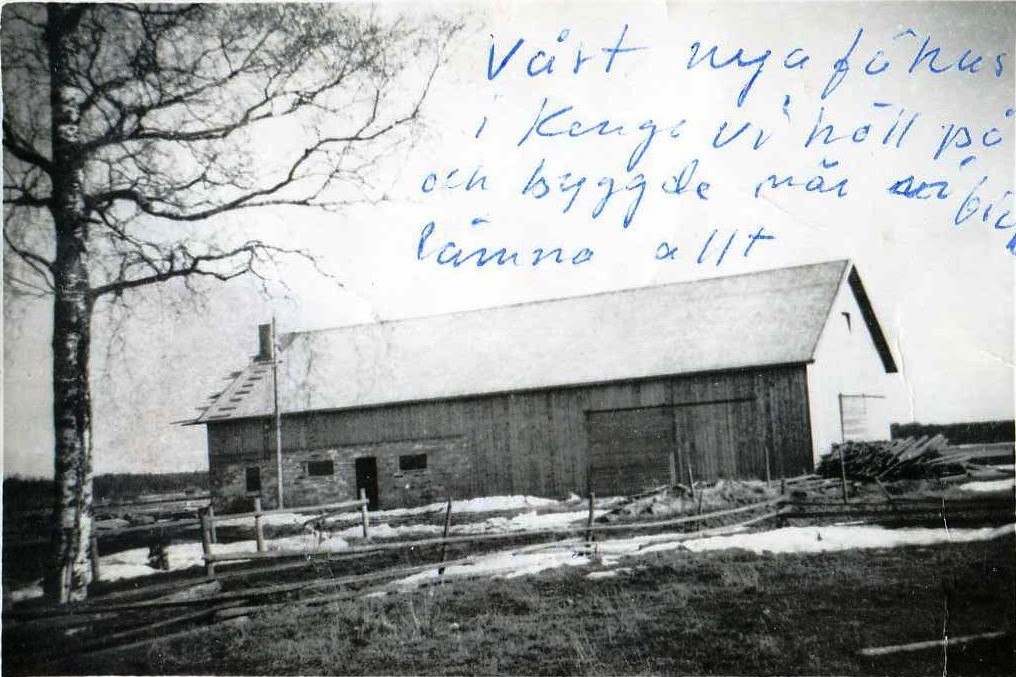 Vårt nya fähus
i Kenga vi höll på
och byggde när vi fick
lämna allt